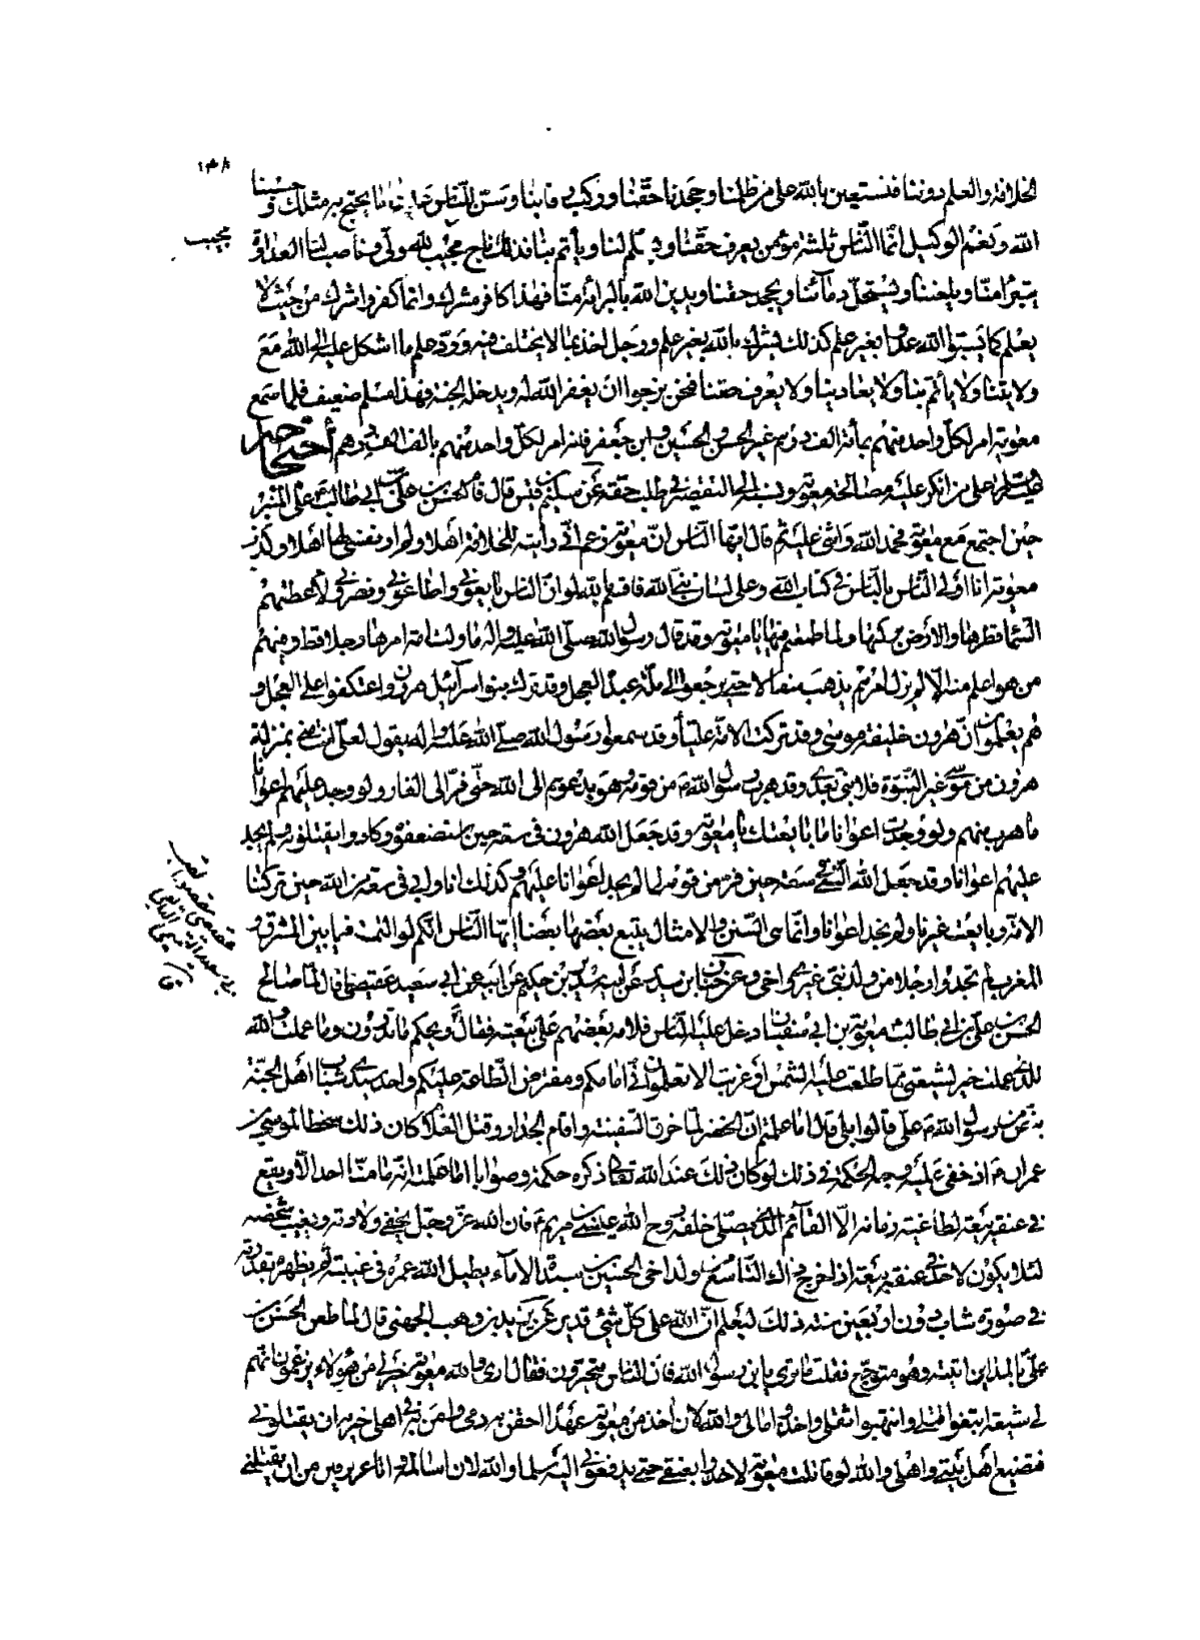 الخلافة والعلم دوننا فنستعين بالله على من ظلمنا وجحدنا حقنا وركب رقابنا وسن للناس علينا ما يحتج به مثلك وحسبنا
الله ونعم الوكيل انما الناس ثلثة مؤمن يعرف حقنا ويسلم لنا ويأتم بنا فذلك ناج محب لله ولي وناصب لنا العداوة
يتبرأ منا ويلعننا ويستحل دمآئنا ويجحد حقنا ويدين الله بالبرائة منا فهذا كافر مشرك وانما كفر واشرك من حيث لا
يعلم كما يسبوا الله عدوا بغير علم كذلك يشرك بالله بغير علم ورجل اخذ بما لا يختلف فيه ورد علم ما اشكل عليه الى الله مع
ولايتنا ولا يأتم بنا ولا يعادينا ولا يعرف حقنا فنحن نرجوا ان يغفر الله له ويدخله الجنة فهذا مسلم ضعيف فلما سمع
معوية امر لكل واحد منهم بمأة الف درهم غير الحسن والحسين وابن جعفر فانه امر لكل واحد منهم بالف الف درهم احتجاجه
على من انكر عليه مصالحة معوية ونسبه الى التقصير في طلب حقه عن سليم بن قيس قال قام الحسن بن علي بن ابي طالب ع على المنبر
حين اجتمع مع معوية فحمد الله واثنى عليه ثم قال ايها الناس ان معوية زعم اني رأيته للخلافة اهلا ولم ار نفسي لها اهلا وكذب
معوية انا اولى الناس بالناس في كتاب الله وعلى لسان نبي الله فاقسم بالله لو ان الناس بايعوني واطاعوني ونصروني لاعطتهم
السمآء قطرها والارض بركتها ولما طمعتم فيها يا معوية وقد قال رسول الله صلى الله عليه واله ما ولت امة امرها رجلا قط وفيهم
من هو اعلم منه الا لم يزل امرهم يذهب سفالا حتى يرجعوا الى ملة عبدة العجل وقد ترك بنو اسرآئيل هرون واعتكفوا على العجل و
هم يعلمون ان هرون خليفة موسى وقد تركت الامة عليا وقد سمعوا رسول الله صلى الله عليه واله يقول لعلي انت مني بمنزلة
هرون من موسى غير النبوة فلا نبي بعدي وقد هرب رسول الله ص من قومه وهو يدعوهم الى الله حتى فر الى الغار ولو وجد عليهم اعوانا
ما هرب منهم ولو وجدت انا اعوانا ما بايعتك يا معوية وقد جعل الله هرون في سعة حين استضعفوه وكادوا يقتلونه ولم يجد
عليهم اعوانا وقد جعل الله النبي في سعة حين فر من قومه لما لم يجد اعوانا عليهم وكذلك انا وابي في سعة من الله حين تركتنا
الامة وبايعت غيرنا ولم نجد اعوانا وانما هي السنن والامثال يتبع بعضها بعضا ايها الناس انكم لو التمستم فيما بين المشرق و
المغرب لم تجدوا رجلا من ولد نبي غيري واخي وعن حنان بن سدير عن ابيه سدير بن حكيم عن ابيه عن ابي سعيد عقيصا قال لما صالح
الحسن بن علي بن ابي طالب ع معوية بن ابي سفيان دخل عليه الناس فلامه بعضهم على بيعته فقال ويحكم ما تدرون وما عملت والله
للذي عملت خير لشيعتي مما طلعت عليه الشمس او غربت الا تعلمون اني امامكم ومفترض الطاعة عليكم واحد سيدي شباب اهل الجنة
بنص من رسول الله ص علي قالوا بلى قال اما علمتم ان الخضر لما خرق السفينة واقام الجدار وقتل الغلام كان ذلك سخطا لموسى بن
عمران ع اذ خفي عليه وجه الحكمة في ذلك لو كان ذلك عند الله تعالى ذكره حكمة وصوابا اما علمتم انه ما منا احد الا ويقع
في عنقه بيعة لطاغية زمانه الا القآئم الذي يصلي خلفه روح الله عيسى بن مريم ع فان الله عز وجل يخفي ولادته ويغيب شخصه
لئلا يكون لاحد في عنقه بيعة اذا خرج ذاك التاسع من ولد اخي الحسين بن سيدة الامآء يطيل الله عمره في غيبته ثم يظهره بقدرته
في صورة شاب دون اربعين سنة ذلك ليعلم ان الله على كل شيء قدير عن زيد بن وهب الجهني قال لما طعن الحسن بن
علي بالمداين اتيته وهو متوجع فقلت ما ترى يا بن رسول الله فان الناس متحيرون فقال ارى والله معوية خير لي من هؤلاء يزعمون انهم
لي شيعة ابتغوا قتلي وانتهبوا ثقلي واخذوا مالي والله لان اخذ من معوية عهدا احقن به دمي وامن به في اهلي خير من ان يقتلوني
فتضيع اهل بيتي واهلي والله لو قاتلت معوية لاخذوا بعنقي حتى يدفعوني اليه سلما والله لان اسالمه وانا عزيز خير من ان يقتلني
محب